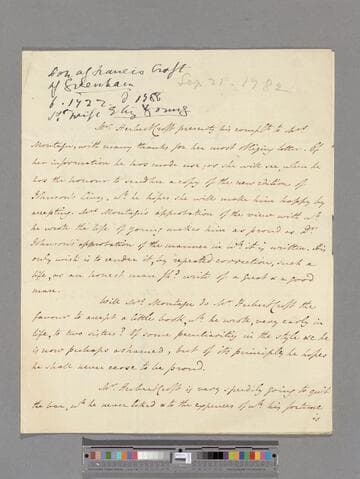 Son of Francis Croft
of
b. 1722. d 1788
1st wife Eliz Young
Sep 21. 1782
Mr. Herbert Croft presents his complts to Mrs.
Montagu, with many thanks for her most obliging letter. Of
her information he has made use, as she will see, when he
has the honour to send her a copy of the new edition of
Johnson's Lives, wch. he hopes she will make him happy by
accepting. Mrs. Montagu's approbation of the view with wch.
he wrote the life of Young makes him as proud as Dr.
Johnson's approbation of the manner in wch. it is written. His
only wish is to render it, by repeated correction, such a
life, as an honest man shd. write of a great & a good
man.
Will Mrs. Montagu do Mr. Herbert Croft the
favour to accept a little book, wch. he wrote, very early in
life, to two sisters? Of some peculiarities in the style &c he
is now perhaps ashamed, but of its principles he hopes
he shall never cease to be proud.
Mr. Herbert Croft is very speedily going to quit
the bar, wch. he never liked & to the expences of wch. his fortune
is